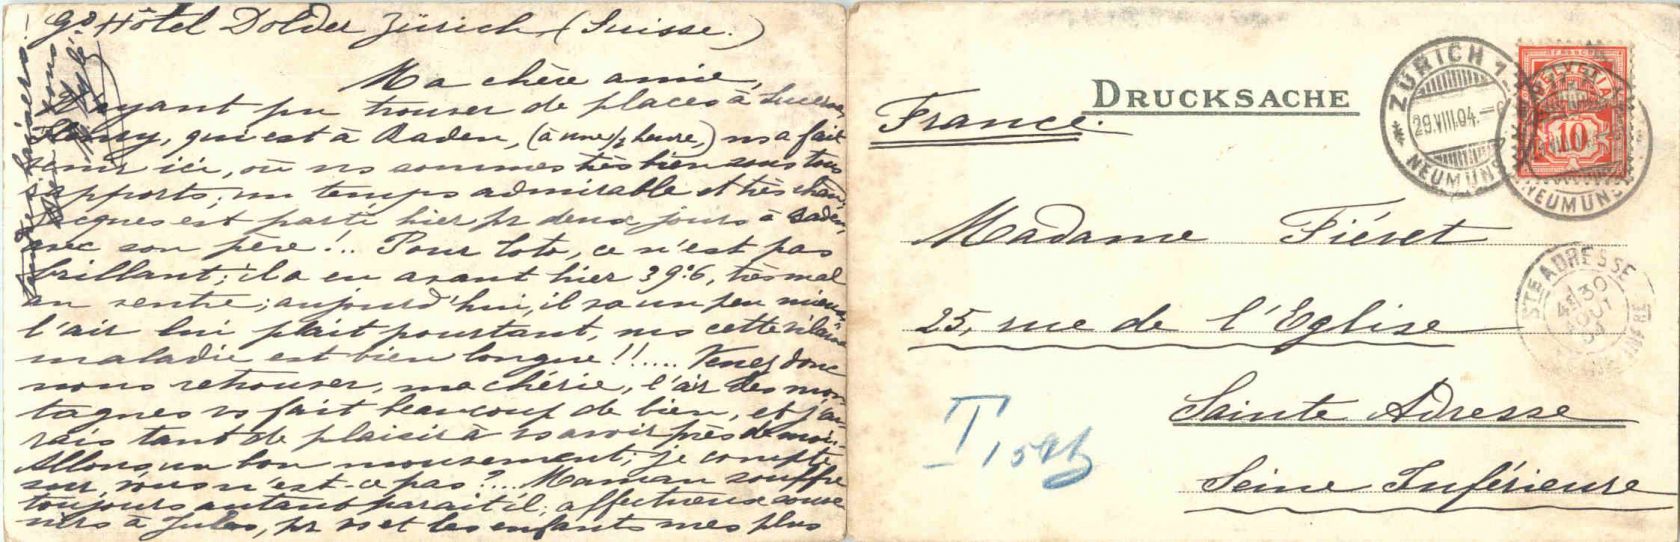 Gd Hôtel Dolder Zürich (Suisse.)
Ma chère amie,
N'ayant pu trouver de places à Lucerne,
qui est à Baden, (à une 1/2 heure,) ns a fait
venir ici, où ns sommes très bien sous tous
rapports; un temps admirable et très chaud,
Jacques est parti hier pr deux jours à Baden,
avec son père!.. Pour Toto, ce n'est pas
brillant; il a eu avant hier 39°6, très mal
au ventre; aujourd'hui, il va un peu mieux,
l'air lui plait pourtant, ms cette vilaine
maladie est bien longue!!..... Venez donc
nous retrouver, ma chérie, l'air des mon
tagnes vs fait beaucoup de bien, et j'au
rais tant de plaisir à vs avoir près de moi..
Allons un bon mouvement; je compte
sur vous n'est-ce pas?... Maman souffre
toujours autant parait il; affectueux souve
nirs à Jules, pr vs et les enfants mes plus
tendres baisers!
DRUCKSACHE
France.
ZÜRICH 1
29.VIII.04.
NEUMÜNS
HELVETIA
FRANCO
10
NEUMÜNS
Madame Fiévet
25, rue de l'Eglise
STE ADRESSE
30
AOUT
04
Sainte Adresse
Seine Inférieure
T